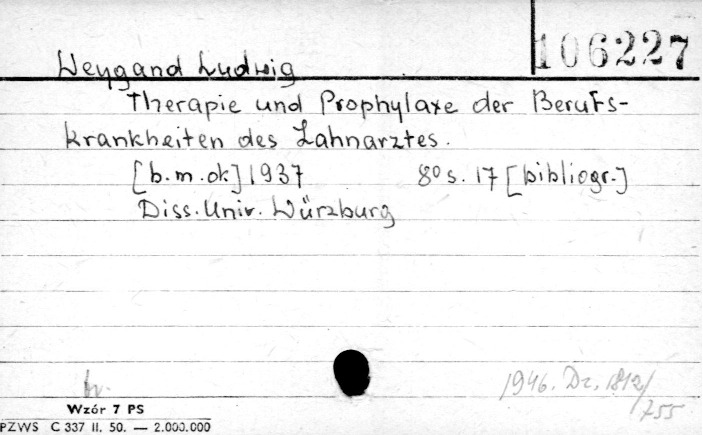 106227
Weygand Ludwig
Therapie und Prophylaxe der Berufs-
krankheiten des Zahnarztes.
[b.m.ok] 1937 8° s. 17 [bibliogr.]
Diss. Univ. Würzburg
br.
1946. Dz. 1812/
755
Wzór 7 PS
PZWS C 337 II. 50. — 2.000.000